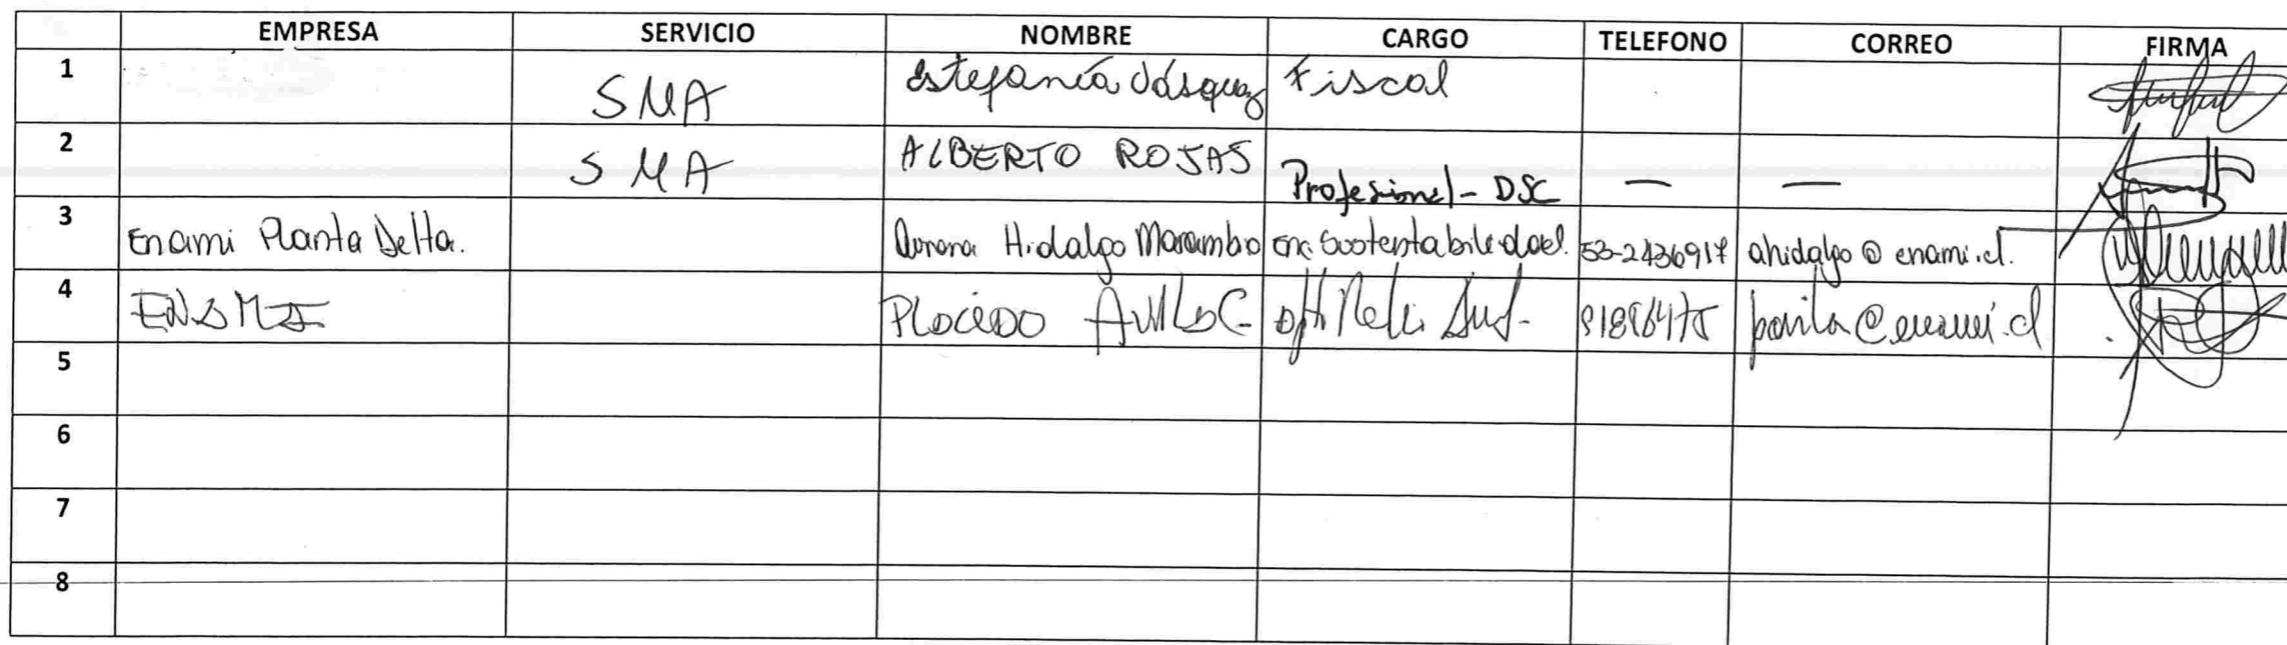 EMPRESA SERVICIO NOMBRE CARGO TELEFONO CORREO FIRMA
1 SMA Estefanía Vásquez Fiscal
2 SMA ALBERTO ROJAS Profesional - DSC — —
3 Enami Planta Delta. Hidalgo Marambio Enc. Sustentabilidad. 53-2436917 ahidalgo@enami.cl.
4 ENAMI
5
6
7
8